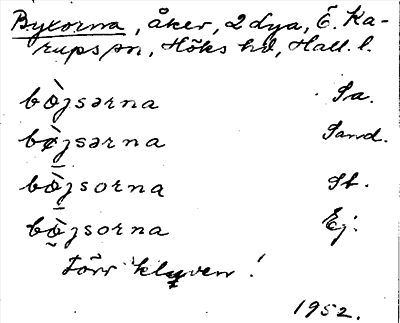 Byxorna, åker, 2 dya, Ö. Ka-
rups sn, Höks hd, Hall. l.
bòjsərna Sa.
bø̀jsərna Sand.
bò̱jsorna St.
bò̰jsorna Ej.
Förr kluven!
1952.